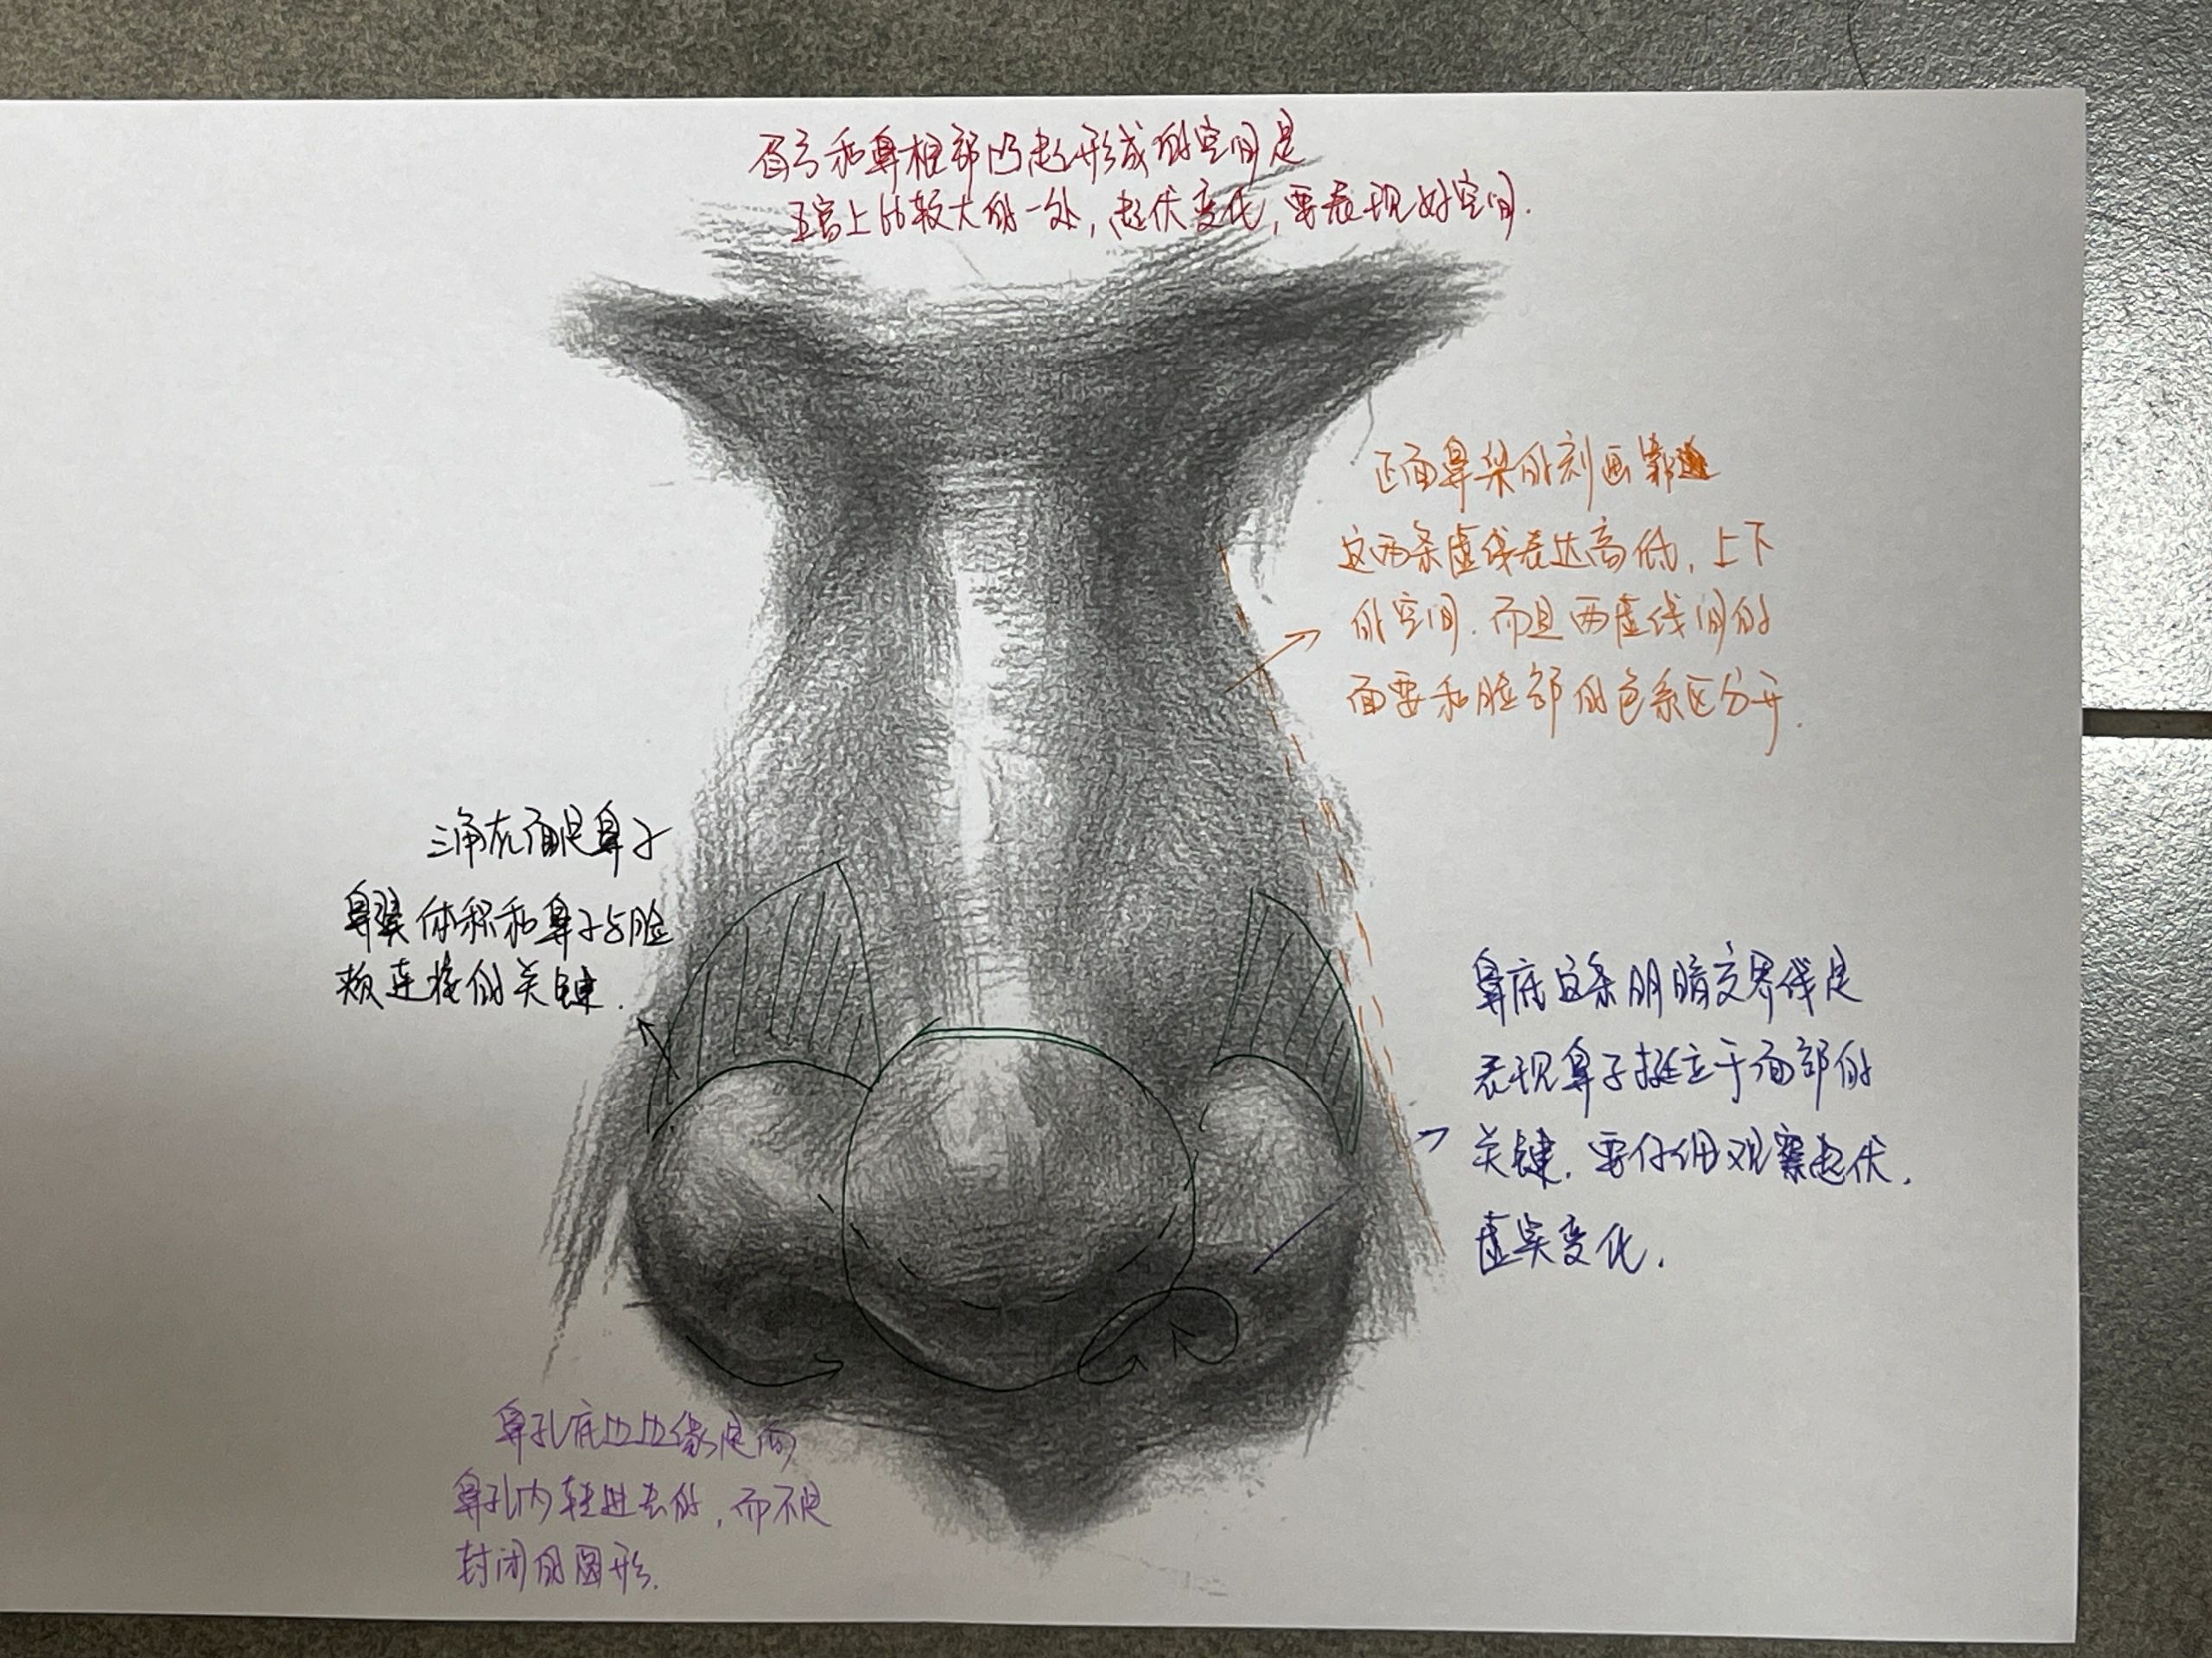 眉弓和鼻根部凹起形成的空间是
五官上比较大的一处，起伏变化，要表现好空间.
正面鼻梁的刻画靠
这两条虚线表达高低，上下
的空间.而且两虚线间的
面要和脸部的色系区分开.
三角灰面是鼻子
鼻翼体积和鼻子与脸
颊连接的关键.
鼻底这条明暗交界线是
表现鼻子挺立于面部的
关键.要仔细观察起伏.
虚实变化.
鼻孔底边边缘是向
鼻孔内转进去的，而不是
封闭的圆形.